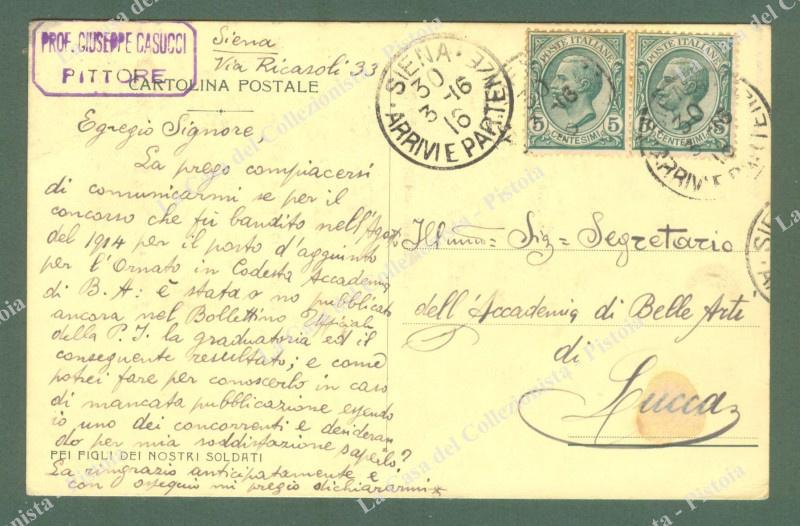 PROF. GIUSEPPE CASUCCI
PITTORE
Siena
Via Ricasoli 33
CARTOLINA POSTALE
Egregio Signore,
La prego compiacersi
di comunicarmi se per il
concorso che fu bandito nell'Agosto
del 1914 per il posto d'aggiunto
per l'Ornato in Codesta Accademia
di B. A. è stata o no pubblicata
ancora nel Bollettino Ufficiale
della P. I. la graduatoria ed il
conseguente resultato; e come
potrei fare per conoscerlo in caso
di mancata pubblicazione essendo
io uno dei concorrenti e desideran
do per mia soddisfazione saperlo?
PEI FIGLI DEI NOSTRI SOLDATI
La ringrazio anticipatamente e
con ossequio mi pregio dichiararmi
SIENA
ARRIVI E PARTENZE
30
3-16
16
POSTE ITALIANE
5 CENTESIMI
POSTE ITALIANE
CENTESIMI
Ill.mo Sig. Segretario
dell'Accademia di Belle Arti
di
Lucca
La Casa del Collezionista - Pistoia